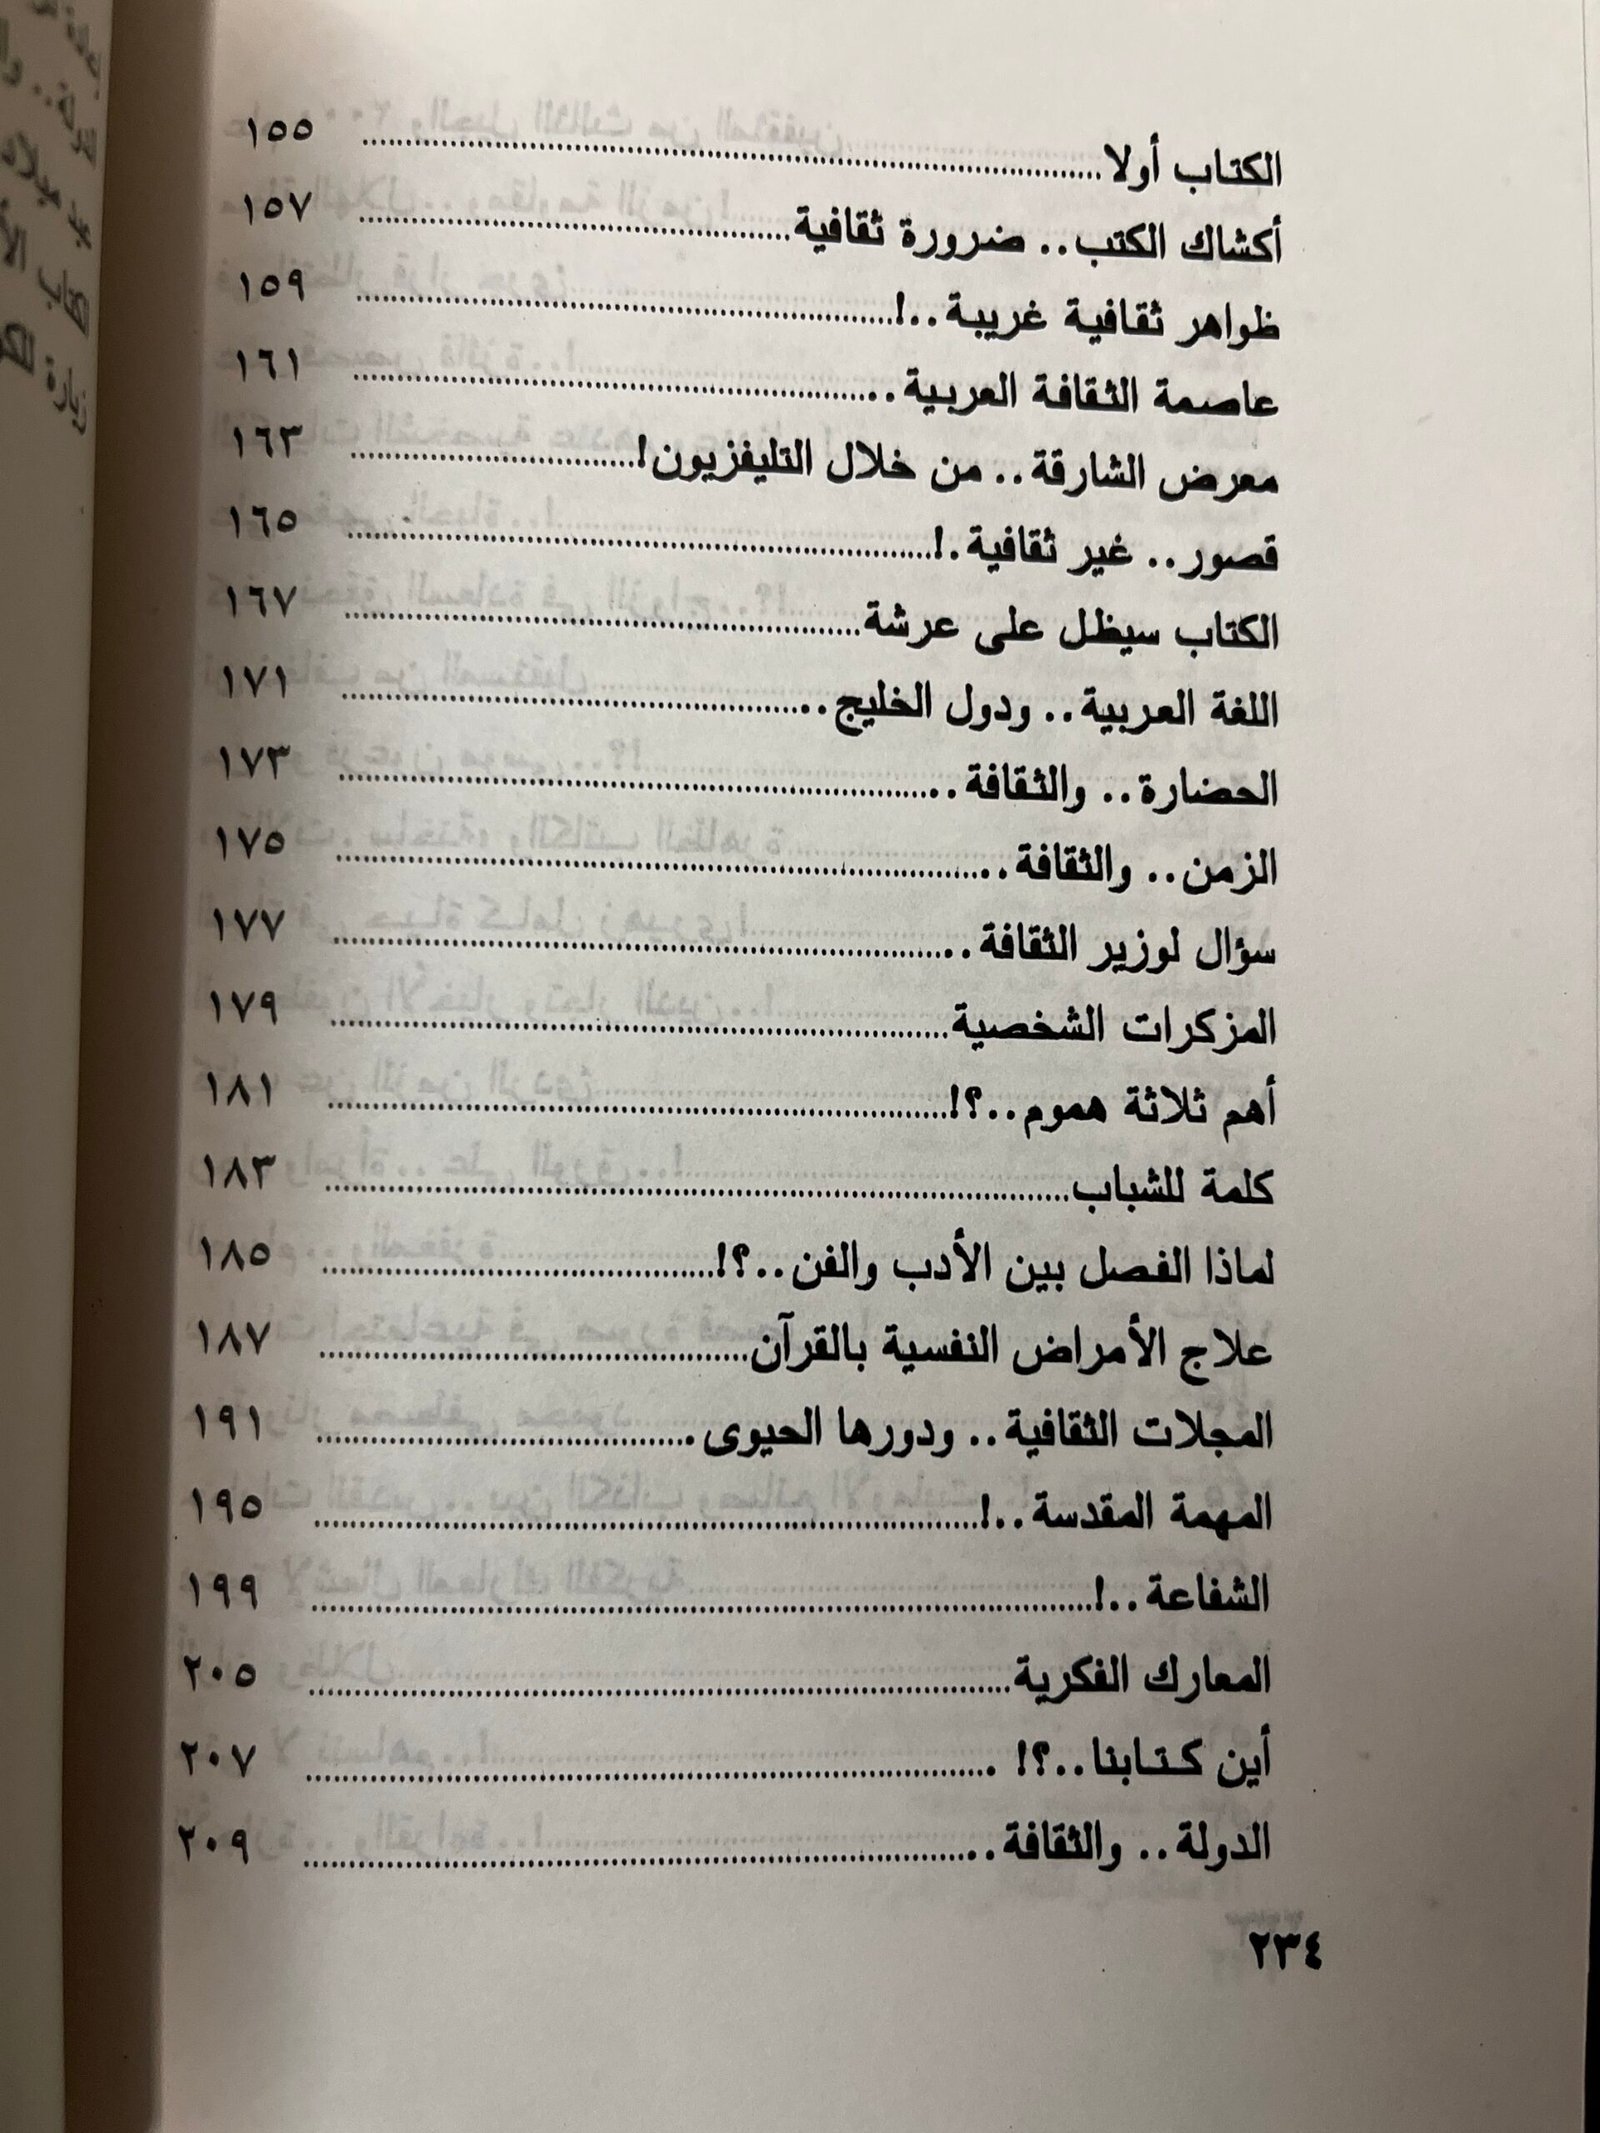 الكتاب أولا ........ ١٥٥
أكشاك الكتب .. ضرورة ثقافية ........ ١٥٧
ظواهر ثقافية غريبة ..! ........ ١٥٩
عاصمة الثقافة العربية .. ........ ١٦١
معرض الشارقة .. من خلال التليفزيون! ........ ١٦٣
قصور .. غير ثقافية .! ........ ١٦٥
الكتاب سيظل على عرشة ........ ١٦٧
اللغة العربية .. ودول الخليج .. ........ ١٧١
الحضارة .. والثقافة .. ........ ١٧٣
الزمن .. والثقافة .. ........ ١٧٥
سؤال لوزير الثقافة .. ........ ١٧٧
المزكرات الشخصية ........ ١٧٩
أهم ثلاثة هموم ..؟! ........ ١٨١
كلمة للشباب ........ ١٨٣
لماذا الفصل بين الأدب والفن ..؟! ........ ١٨٥
علاج الأمراض النفسية بالقرآن ........ ١٨٧
المجلات الثقافية .. ودورها الحيوى . ........ ١٩١
المهمة المقدسة ..! ........ ١٩٥
الشفاعة ..! ........ ١٩٩
المعارك الفكرية ........ ٢٠٥
أين كتابنا ..؟! . ........ ٢٠٧
الدولة .. والثقافة .. ........ ٢٠٩
٢٣٤